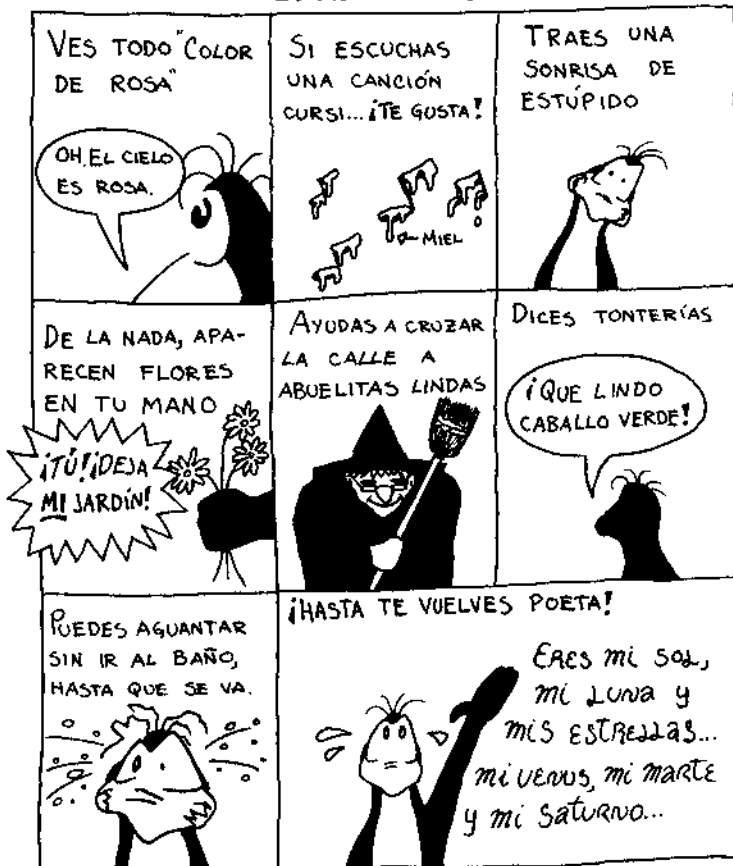 VES TODO "COLOR
DE ROSA"
OH, EL CIELO
ES ROSA.
SI ESCUCHAS
UNA CANCIÓN
CURSI... ¡TE GUSTA!
MIEL
TRAES UNA
SONRISA DE
ESTÚPIDO
DE LA NADA, APA-
RECEN FLORES
EN TU MANO
¡TÚ! ¡DEJA
MI JARDÍN!
AYUDAS A CRUZAR
LA CALLE A
ABUELITAS LINDAS
DICES TONTERÍAS
¡QUE LINDO
CABALLO VERDE!
PUEDES AGUANTAR
SIN IR AL BAÑO,
HASTA QUE SE VA.
¡HASTA TE VUELVES POETA!
ERES mi SOL,
mi LUNA y
mis ESTRELLAS...
mi VENUS, mi MARTE
y mi SATURNO...